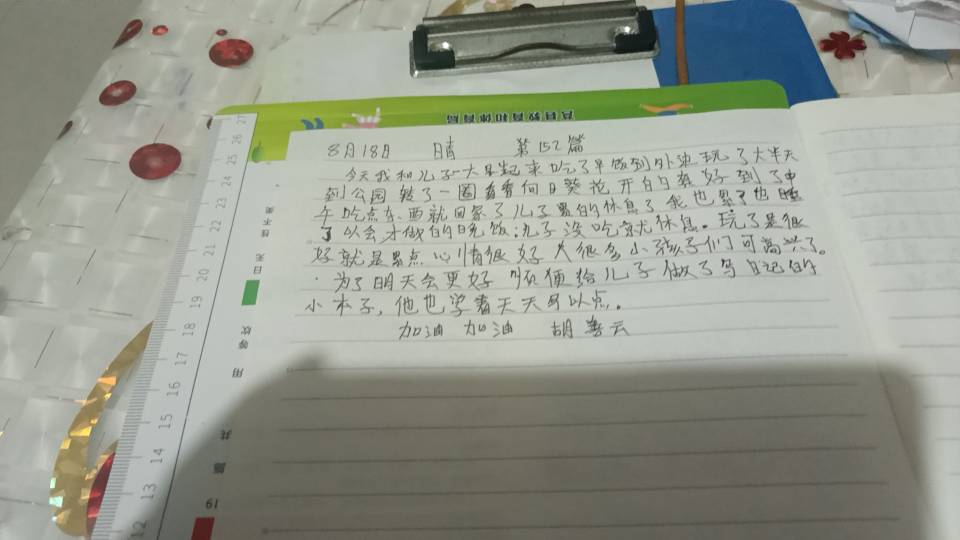 8月18日 晴 第152篇
今天我和儿子一大早起来吃了早饭到外边玩了大半天
到公园转了一圈看看向日葵花开的真好到了中
午吃点东西就回家了儿子累的休息了我也累了也睡
了以会才做的晚饭;儿子没吃就休息。玩了是很
好就是累点心情很好人很多小孩子们可高兴了。
为了明天会更好 顺便给儿子做了写日记的
小本子,他也学着天天写以点。
加油 加油 胡善云
27
26
25
24
23
22
21
20
19
18
17
16
15
14
13
12
19